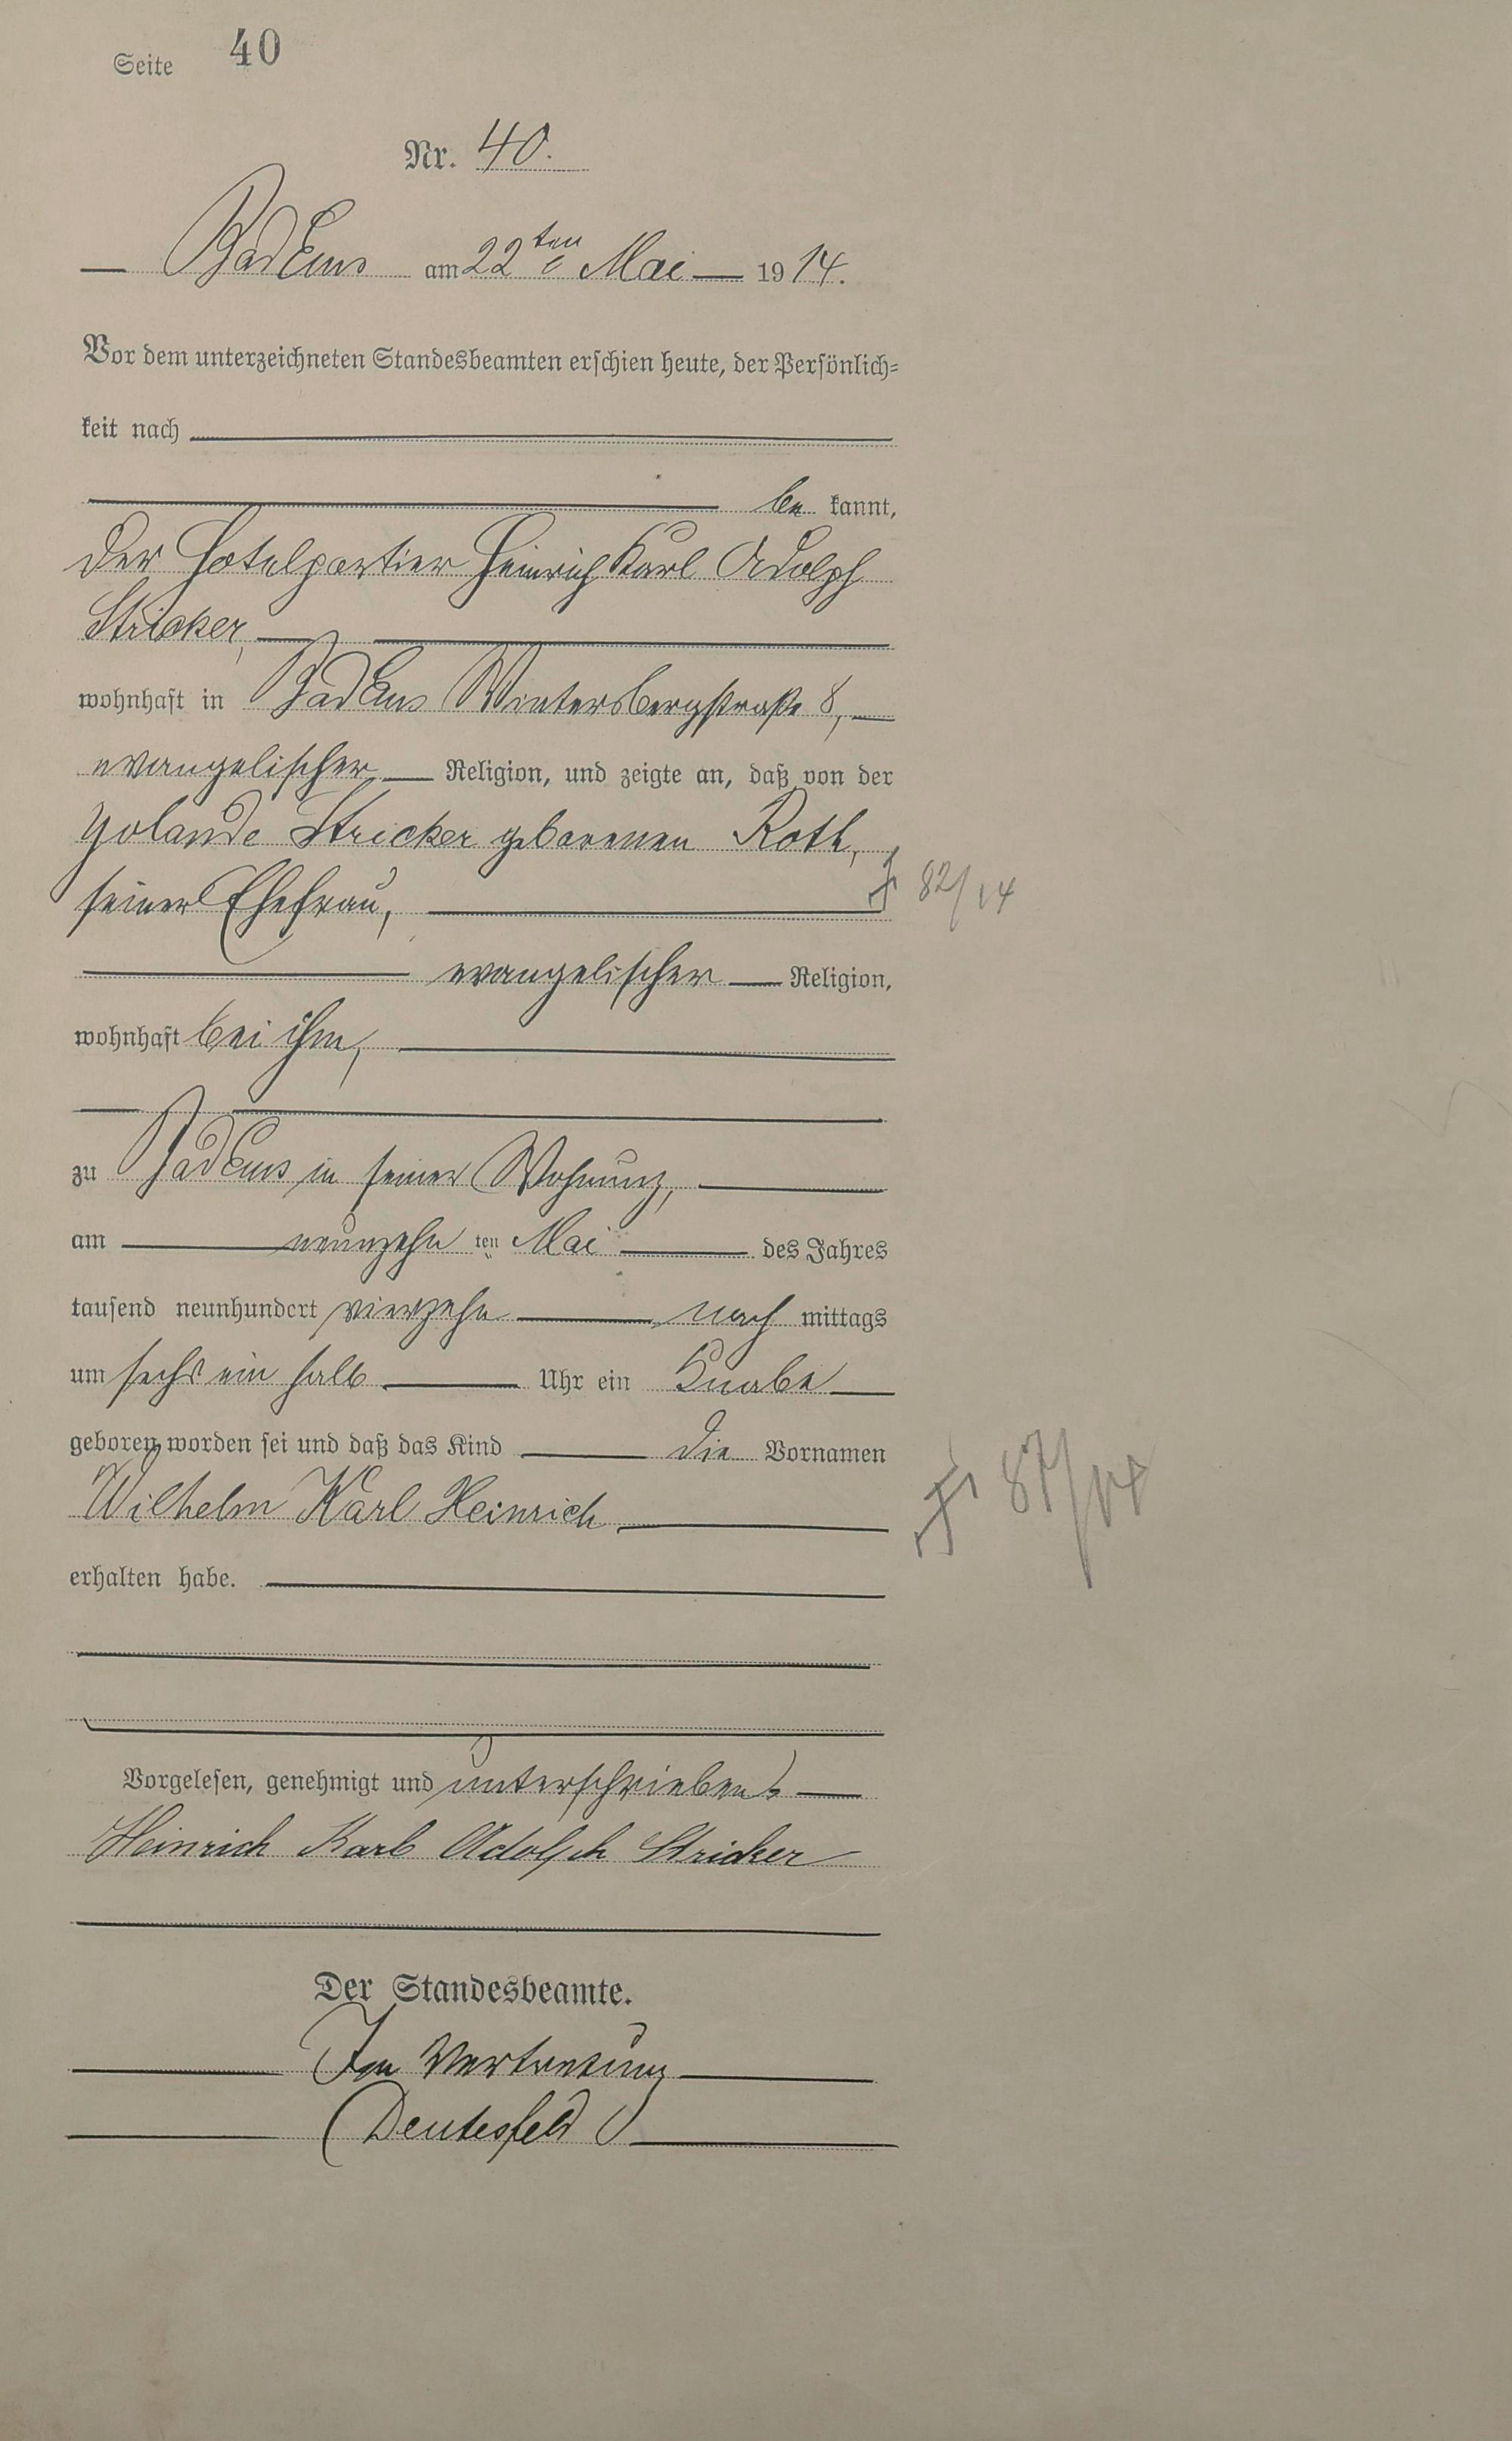 Seite 40
Nr. 40.
Bad Ems am 22ten Mai 1914.
Vor dem unterzeichneten Standesbeamten erschien heute, der Persönlich=
keit nach
be kannt,
der Hotelportier Heinrich Karl Adolph
Stricker,
wohnhaft in Bad Ems Wintersbergstraße 8,
evangelischer Religion, und zeigte an, daß von der
Yolande Stricker geborenen Roth,
seiner Ehefrau, † 82/14
evangelischer Religion,
wohnhaft bei ihm,
zu Bad Ems in seiner Wohnung,
am neunzehn ten Mai des Jahres
tausend neunhundert vierzehn nach mittags
um sechs ein halb Uhr ein Knabe
geboren worden sei und daß das Kind die Vornamen
Wilhelm Karl Heinrich † 87/14
erhalten habe.
Vorgelesen, genehmigt und unterschrieben:
Heinrich Karl Adolph Stricker
Der Standesbeamte.
In Vertretung
Deutesfeld